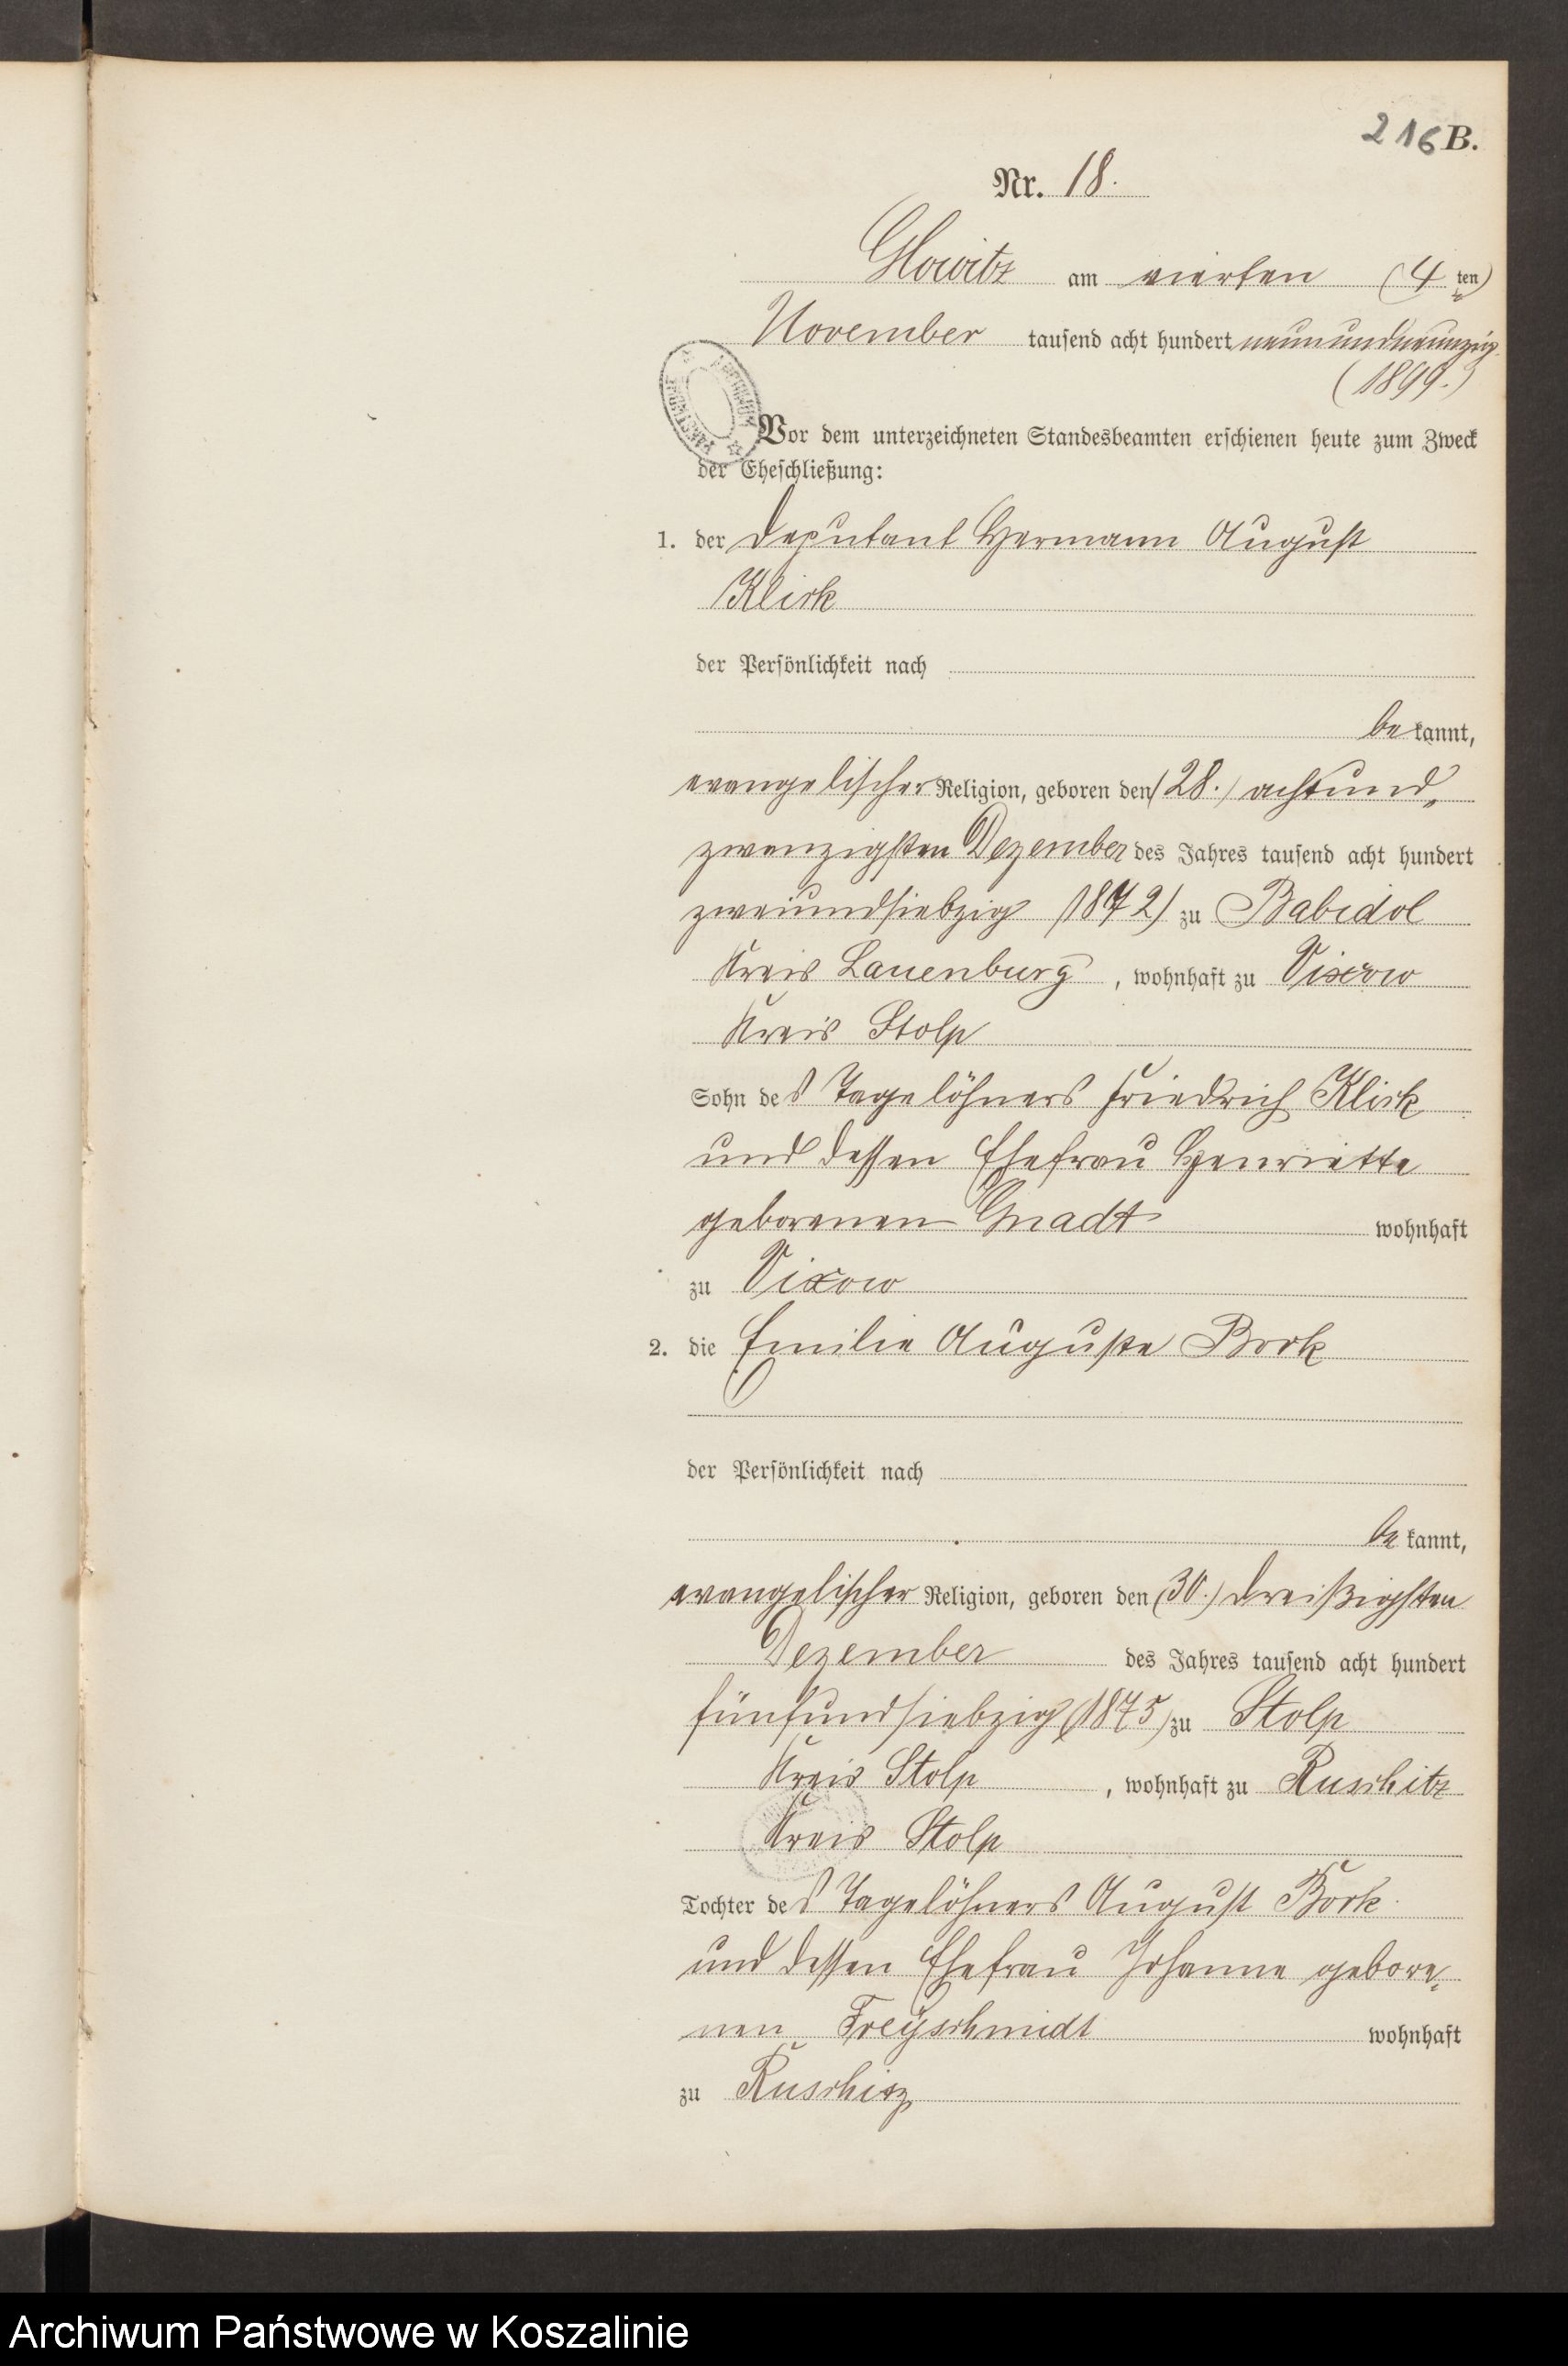 216 B.
Nr. 18.
Glowitz am vierten (4 ten)
November tausend acht hundert neunundneunzig
(1899.)
Vor dem unterzeichneten Standesbeamten erschienen heute zum Zweck
der Eheschließung:
1. der Deputant Hermann August
Klick
der Persönlichkeit nach
be kannt,
evangelischer Religion, geboren den (28.) achtund-
zwanzigsten Dezember des Jahres tausend acht hundert
zweiundsiebzig (1872) zu Babidol
Kreis Lauenburg, wohnhaft zu Vixow
Kreis Stolp
Sohn des Tagelöhners Friedrich Klick
und dessen Ehefrau Henriette
geborenen Gnadt wohnhaft
zu Vixow
2. die Emilie Auguste Bork
der Persönlichkeit nach
be kannt,
evangelischer Religion, geboren den (30.) dreißigsten
Dezember des Jahres tausend acht hundert
fünfundsiebzig (1875) zu Stolp
Kreis Stolp, wohnhaft zu Ruschitz
Kreis Stolp
Tochter des Tagelöhners August Bork
und dessen Ehefrau Johanne gebore-
nen Freyschmidt wohnhaft
zu Ruschitz
Archiwum Państwowe w Koszalinie